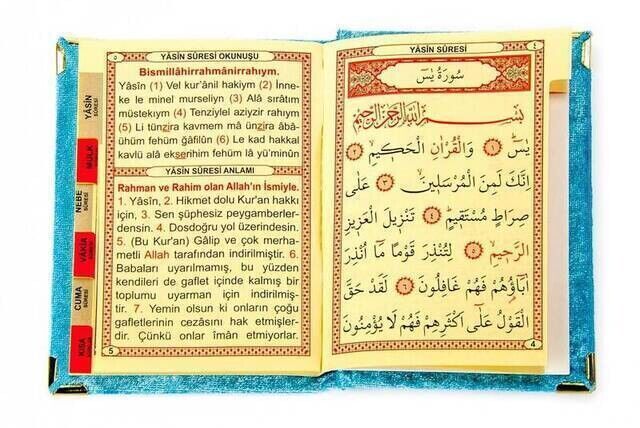 ٥
YÂSİN SÛRESİ OKUNUŞU
Bismillâhirrahmânirrahıym.
Yâsîn (1) Vel kur'ânil hakiym (2) İnne-
ke le minel murseliyn (3) Alâ sırâtım
müstekıym (4) Tenziylel aziyzir rahıym
(5) Li tünzira kavmem mâ ünzira âbâ-
ühüm fehüm ğâfilûn (6) Le kad hakkal
kavlü alâ ekserihim fehüm lâ yü'minûn
YÂSİN SÛRESİ ANLAMI
Rahman ve Rahim olan Allah'ın İsmiyle.
1. Yâsîn, 2. Hikmet dolu Kur'an hakkı
için, 3. Sen şüphesiz peygamberler-
densin. 4. Dosdoğru yol üzerindesin.
5. (Bu Kur'an) Gâlip ve çok merha-
metli Allah tarafından indirilmiştir. 6.
Babaları uyarılmamış, bu yüzden
kendileri de gaflet içinde kalmış bir
toplumu uyarman için indirilmiş-
tir. 7. Yemin olsun ki onların çoğu
gafletlerinin cezasını hak etmişler-
dir. Çünkü onlar îmân etmiyorlar.
5
YÂSİN
SÛRESİ
MÜLK
SÛRESİ
NEBE
SÛRESİ
VÂKIA
SÛRESİ
CUMA
SÛRESİ
KISA
YÂSİN SÛRESİ
٤
سُورَةُ يٰسٓ
بِسْمِ اللّٰهِ الرَّحْمٰنِ الرَّحِيمِ
يٰسٓ ﴿١﴾ وَالْقُرْاٰنِ الْحَكِيمِ ﴿٢﴾
اِنَّكَ لَمِنَ الْمُرْسَلِينَ ﴿٣﴾ عَلٰى
صِرَاطٍ مُسْتَقِيمٍ ﴿٤﴾ تَنْزِيلَ الْعَزِيزِ
الرَّحِيمِ ﴿٥﴾ لِتُنْذِرَ قَوْمًا مَٓا اُنْذِرَ
اٰبَٓاؤُهُمْ فَهُمْ غَافِلُونَ ﴿٦﴾ لَقَدْ حَقَّ
الْقَوْلُ عَلٰٓى اَكْثَرِهِمْ فَهُمْ لَا يُؤْمِنُونَ
4